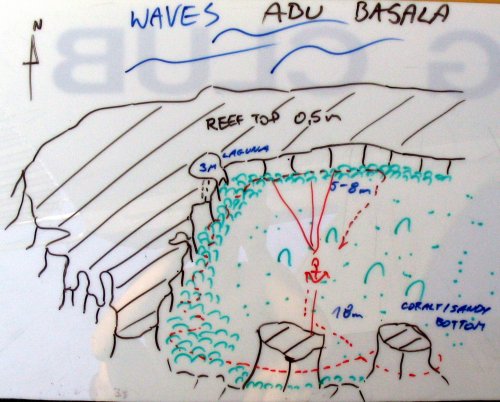 WAVES ABU BASALA
N
G CLUB
REEF TOP 0,5m
3M LAGUNA
5-8m
18m
CORALT/SANDY
BOTTOM